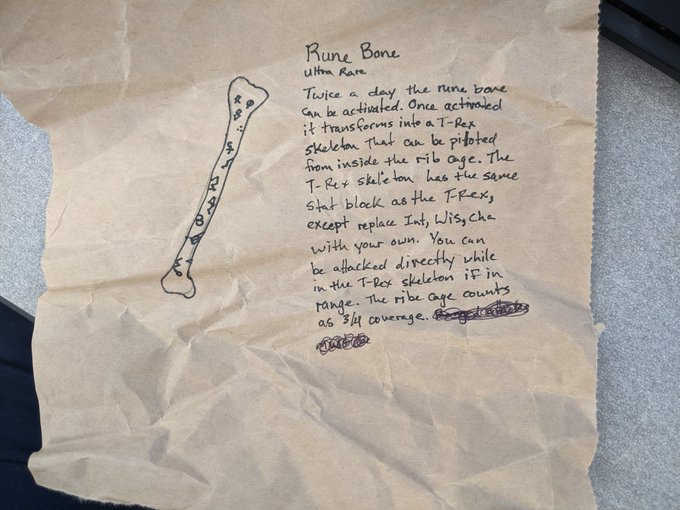 Rune Bone
Ultra Rare
Twice a day the rune bone
can be activated. Once activated
it transforms into a T-Rex
skeleton that can be piloted
from inside the rib cage. The
T-Rex skeleton has the same
stat block as the T-Rex,
except replace Int, Wis, Cha
with your own. You can
be attacked directly while
in the T-Rex skeleton if in
range. The ribe cage counts
as 3/4 coverage.